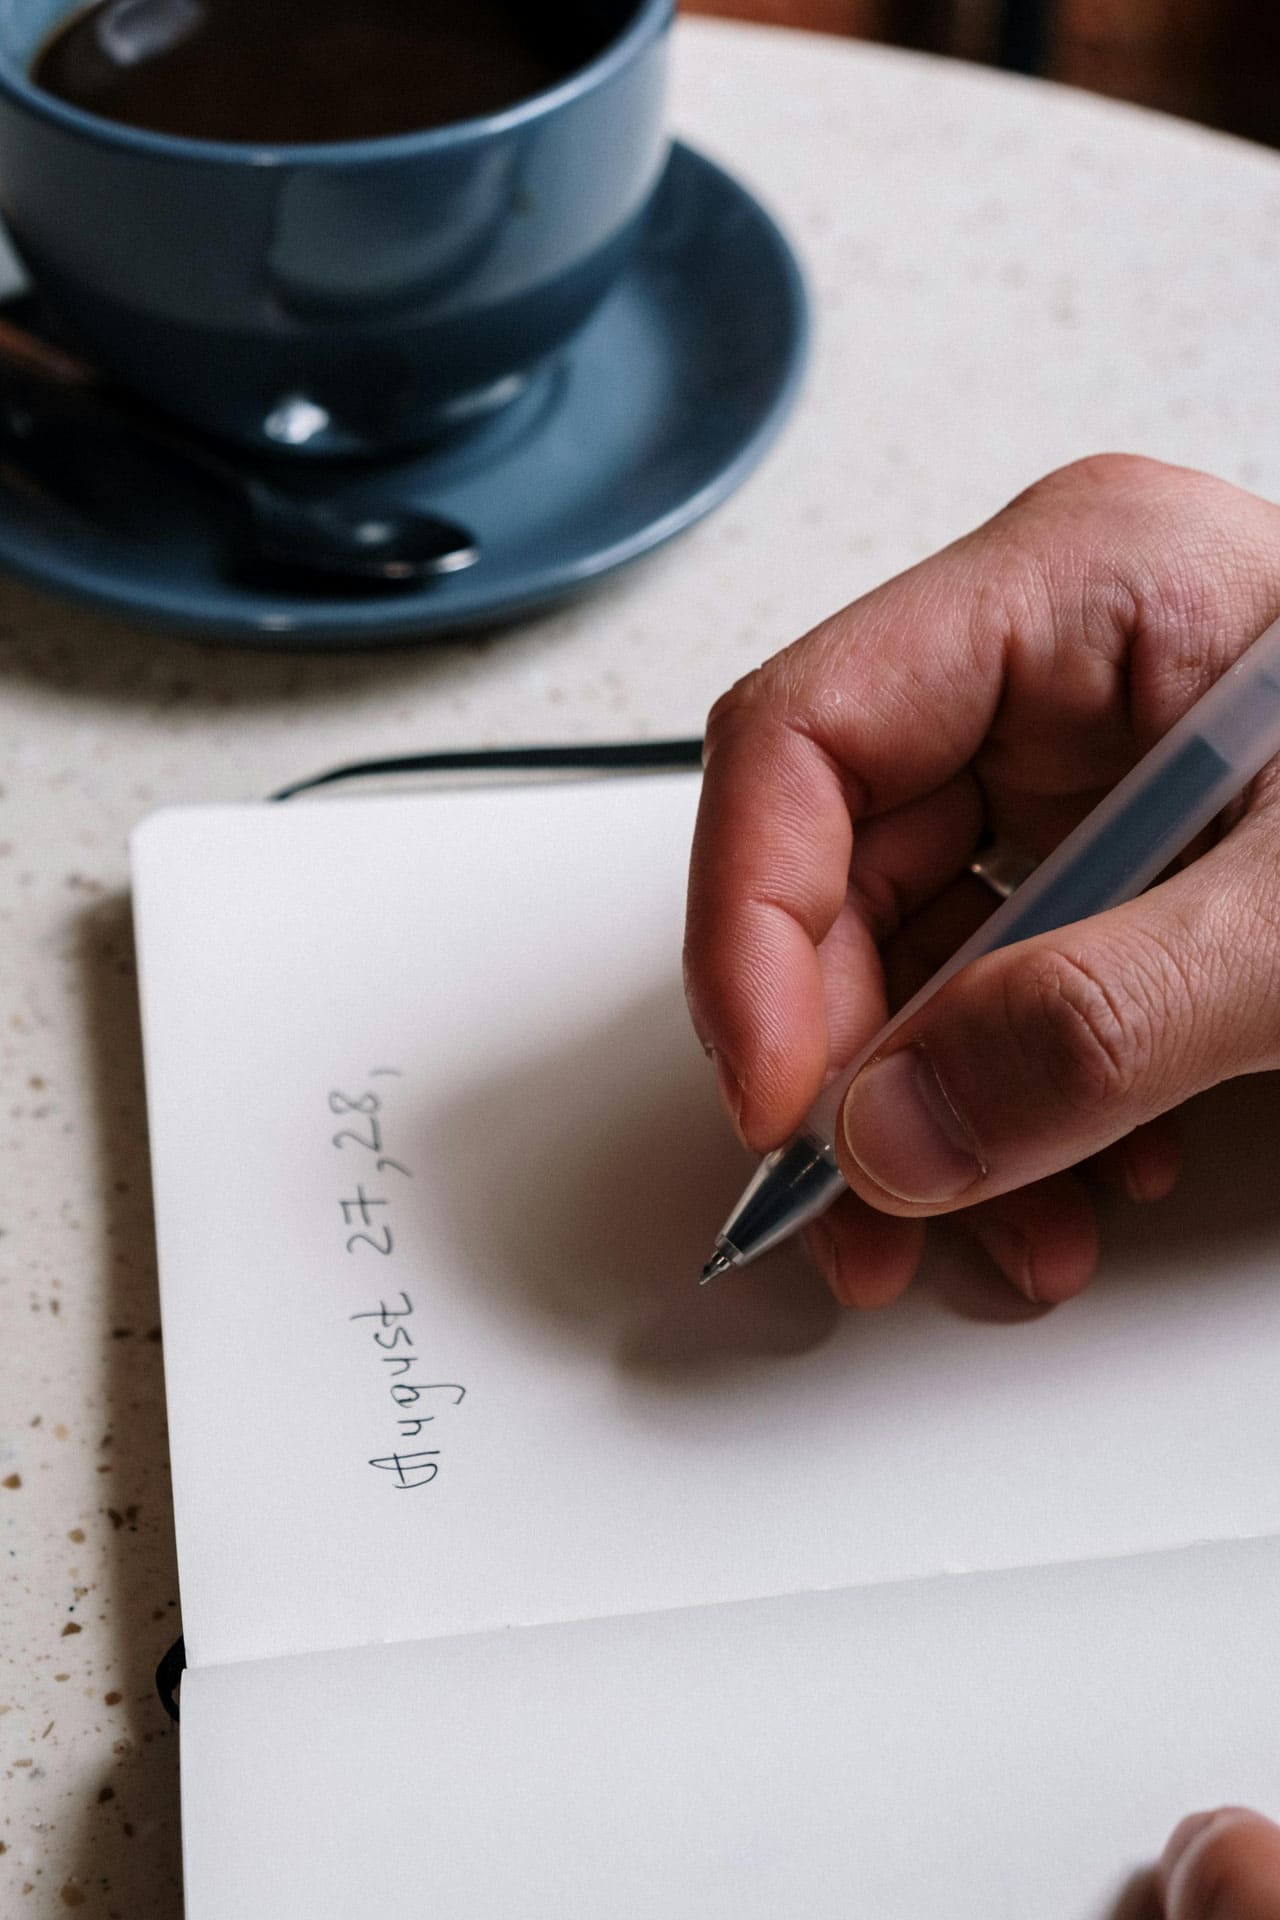 August 27,28,